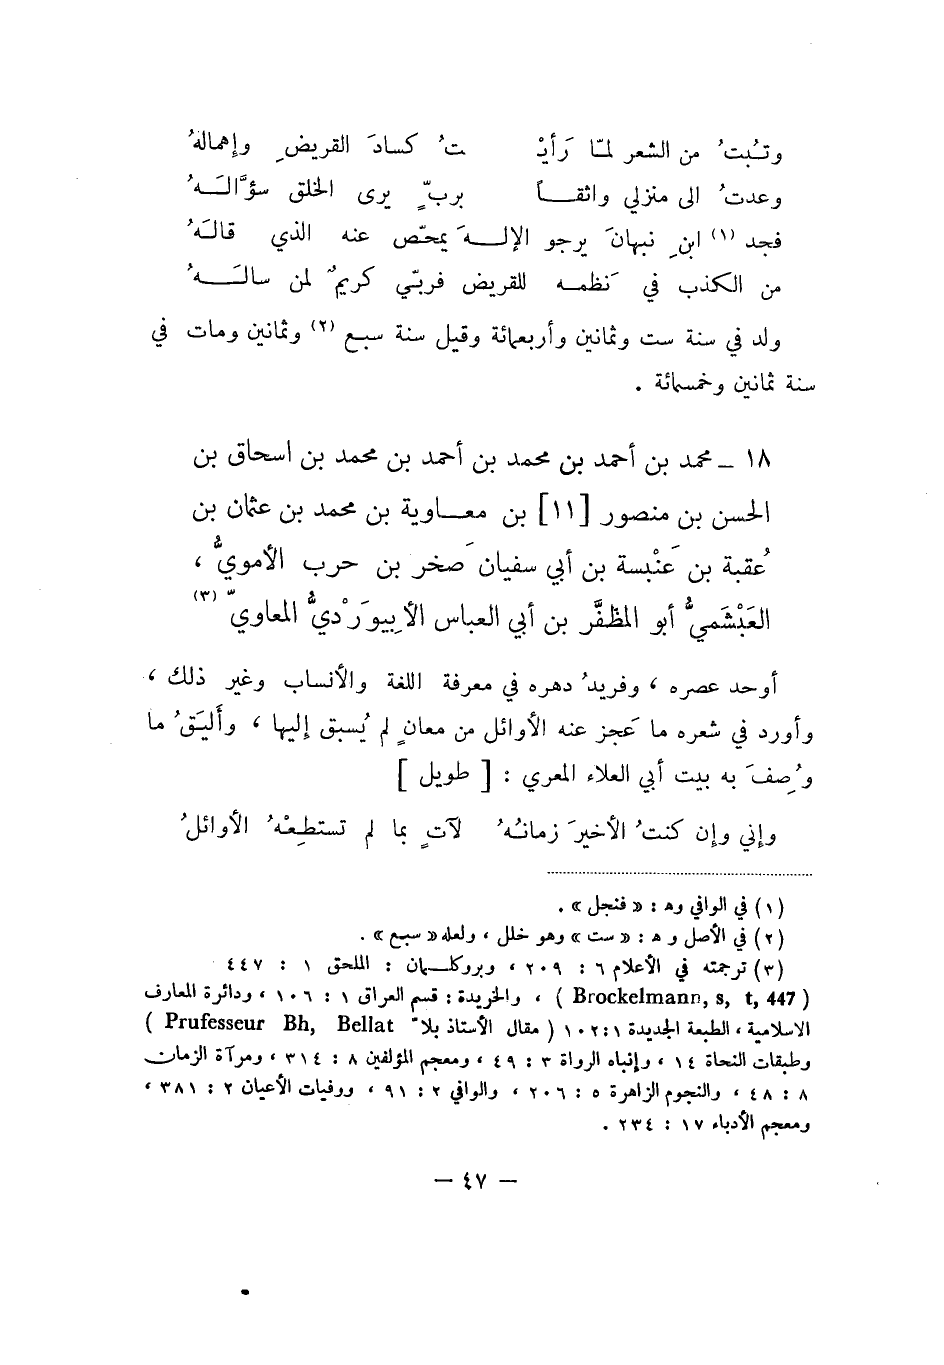 وتُبتُ من الشعر لمّا رَأيْ تُ كسادَ القريضِ وإهمالهُ
وعدتُ الى منزلي واثقـاً بربٍّ يرى الخلق سؤَّالَـهُ
فجد (١) ابنِ نبهانَ يرجو الإلـهَ يمحّص عنه الذي قالهُ
من الكذب في نَظمـه للقريض فربّي كريمٌ لمن سالَـهُ
ولد في سنة ست وثمانين وأربعمائة وقيل سنة سبع (٢) وثمانين ومات في
سنة ثمانين وخمسمائة .
١٨ ـ محمد بن أحمد بن محمد بن أحمد بن محمد بن اسحاق بن
الحسن بن منصور [١١] بن معـاوية بن محمد بن عثمان بن
عُقبة بن عَنْبسة بن أبي سفيان صَخر بن حرب الأمويُّ ،
العَبْشَميُّ أبو المظفَّر بن أبي العباس الأَبِيوَرْديُّ المعاويّ (٣)
أوحد عصره ، وفريدُ دهره في معرفة اللغة والأنساب وغير ذلك ،
وأورد في شعره ما عَجز عنه الأوائل من معانٍ لم يُسبق إليها ، وأَليَقُ ما
وُصِفَ به بيت أبي العلاء المعري : [ طويل ]
وإني وإن كنتُ الأخيرَ زمانُهُ لآتٍ بما لم تستطِعْهُ الأوائلُ
(١) في الوافي وه : « فنجل » .
(٢) في الأصل و ه : « ست » وهو خلل ، ولعله « سبع » .
(٣) ترجمته في الأعلام ٦ : ٢٠٩ ، وبروكلـمان : الملحق ١ : ٤٤٧
( Brockelmann, s, t, 447 ) ، والخريدة : قسم العراق ١ : ١٠٦ ، ودائرة المعارف
الاسلامية ، الطبعة الجديدة ١ : ١٠٢ ( مقال الأستاذ بلا ّ Prufesseur Bh, Bellat )
وطبقات النحاة ١٤ ، وإنباه الرواة ٣ : ٤٩ ، ومعجم المؤلفين ٨ : ٣١٤ ، ومرآة الزمان
٨ : ٤٨ ، والنجوم الزاهرة ٥ : ٢٠٦ ، والوافي ٢ : ٩١ ، ووفيات الأعيان ٢ : ٣٨١ ،
ومعجم الأدباء ١٧ : ٢٣٤ .
— ٤٧ —